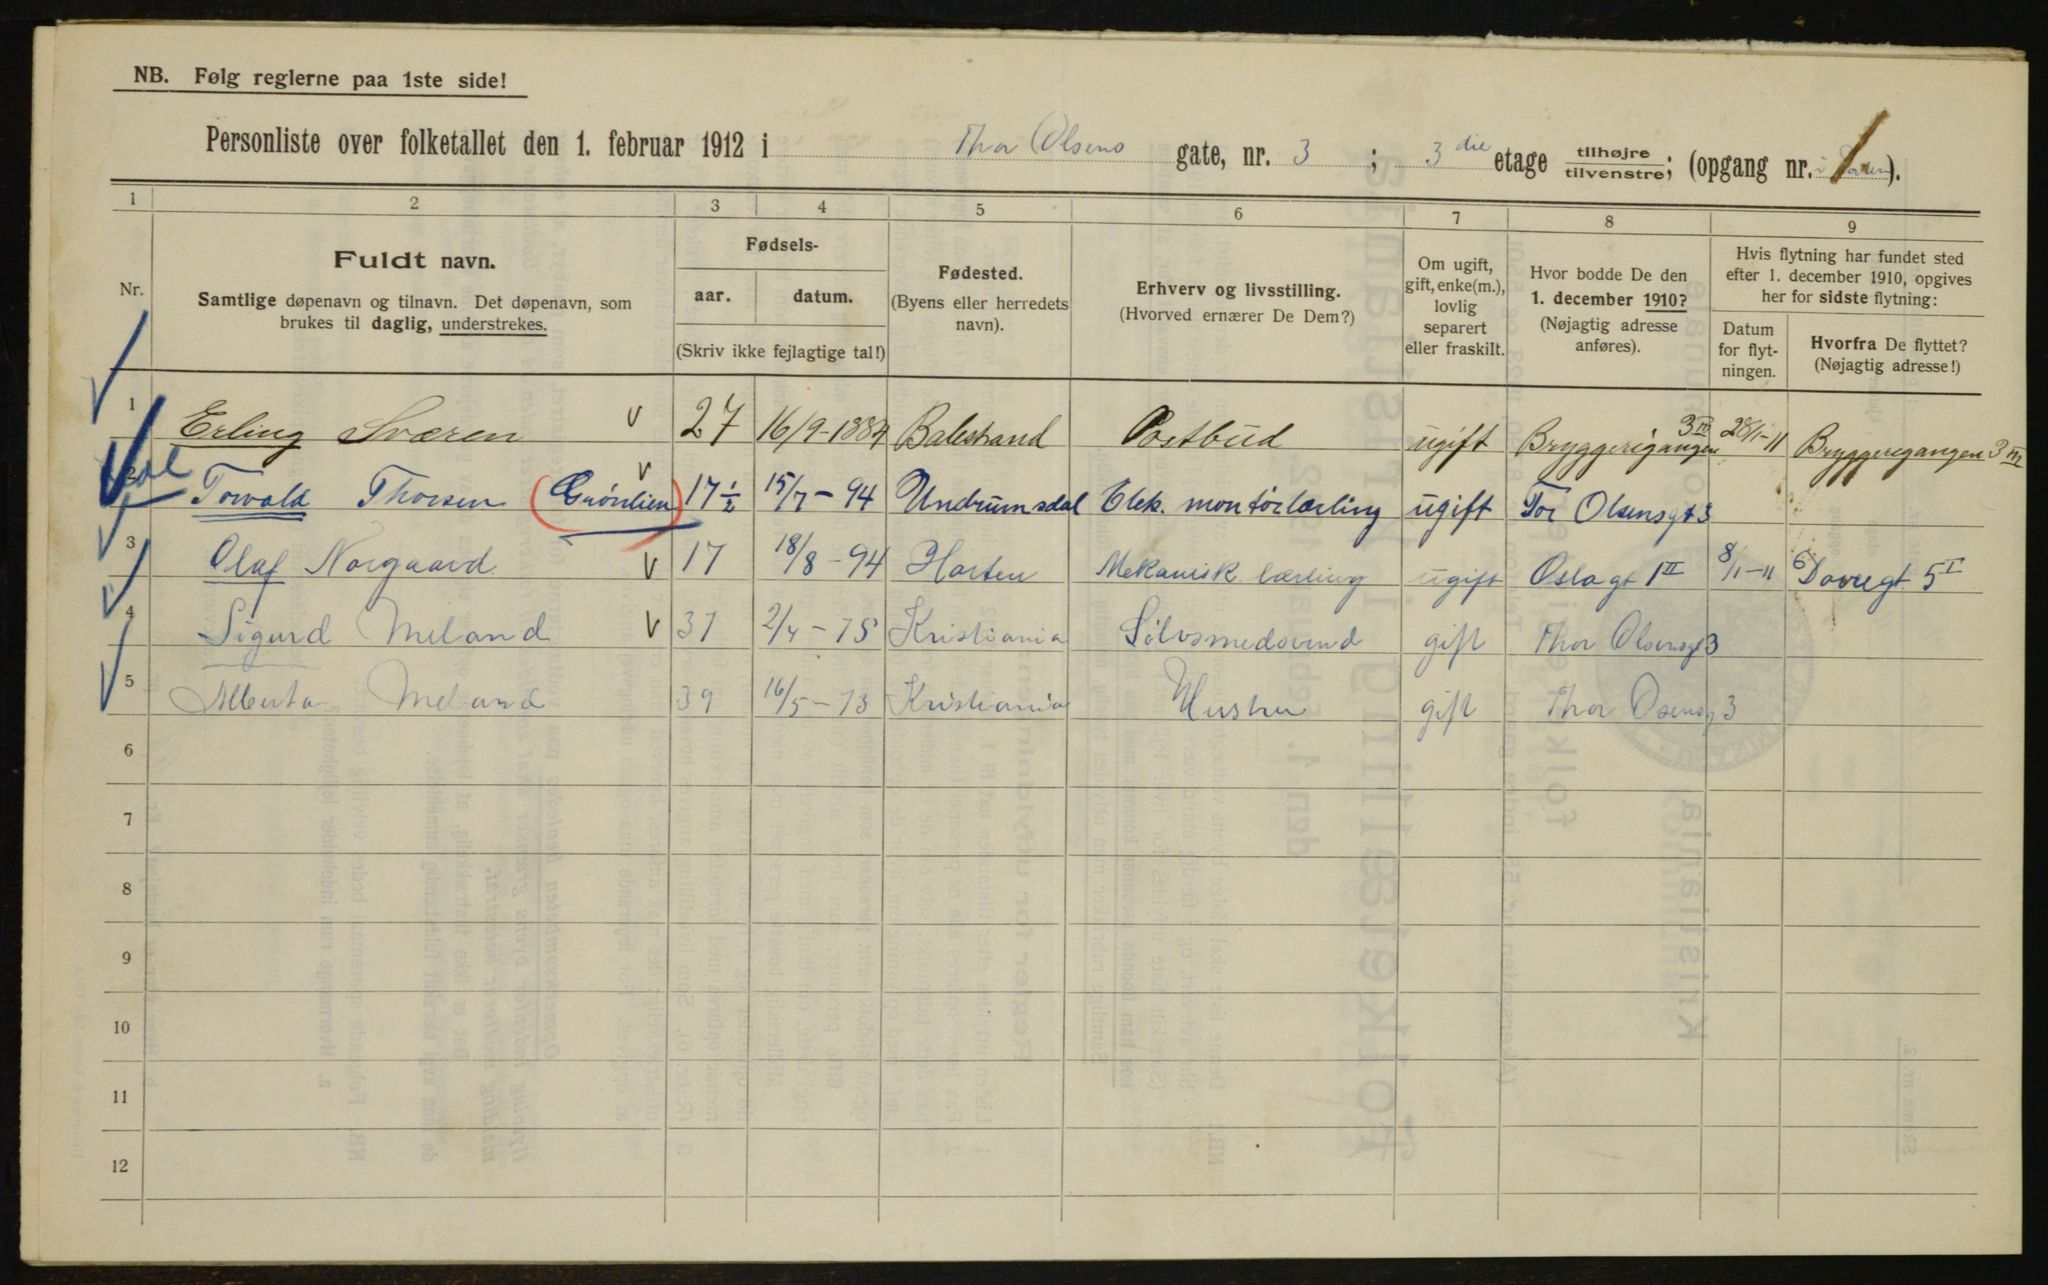 NB. Følg reglerne paa 1ste side!
Personliste over folketallet den 1. februar 1912 i Thor Olsens gate, nr. 3 ; 3 die etage tilhøjre tilvenstre; (opgang nr. ).
1 2 3 4 5 6 7 8 9
Nr.
Fuldt navn.
Samtlige døpenavn og tilnavn. Det døpenavn, som
brukes til daglig, understrekes.
Fødsels-
aar. datum.
(Skriv ikke fejlagtige tal!)
Fødested.
(Byens eller herredets
navn).
Erhverv og livsstilling.
(Hvorved ernærer De Dem?)
Om ugift,
gift, enke(m.),
lovlig
separert
eller fraskilt.
Hvor bodde De den
1. december 1910?
(Nøjagtig adresse
anføres).
Hvis flytning har fundet sted
efter 1. december 1910, opgives
her for sidste flytning:
Datum
for flyt-
ningen.
Hvorfra De flyttet?
(Nøjagtig adresse!)
1 Erling Sværen v 27 16/9-1884 Balestrand Postbud ugift Bryggerigangen 3 III 28/1-11 Bryggeregangen 3 III
2 Torvald Thorsen (Grönlien) v 17 ½ 15/7-94 Undrumsdal Elek. montörlærling ugift Tor Olsensgt 3
3 Olaf Norgaard v 17 18/8-94 Horten Mekanisk lærling ugift Oslogt 1 II 8/1-11 Dovregt 5 I
4 Sigurd Meland v 37 2/4-75 Kristiania Sølvsmedsvend gift Thor Olsensgt 3
5 Alberta Meland 39 16/5-73 Kristiania Hustru gift Thor Osensg 3
6
7
8
9
10
11
12